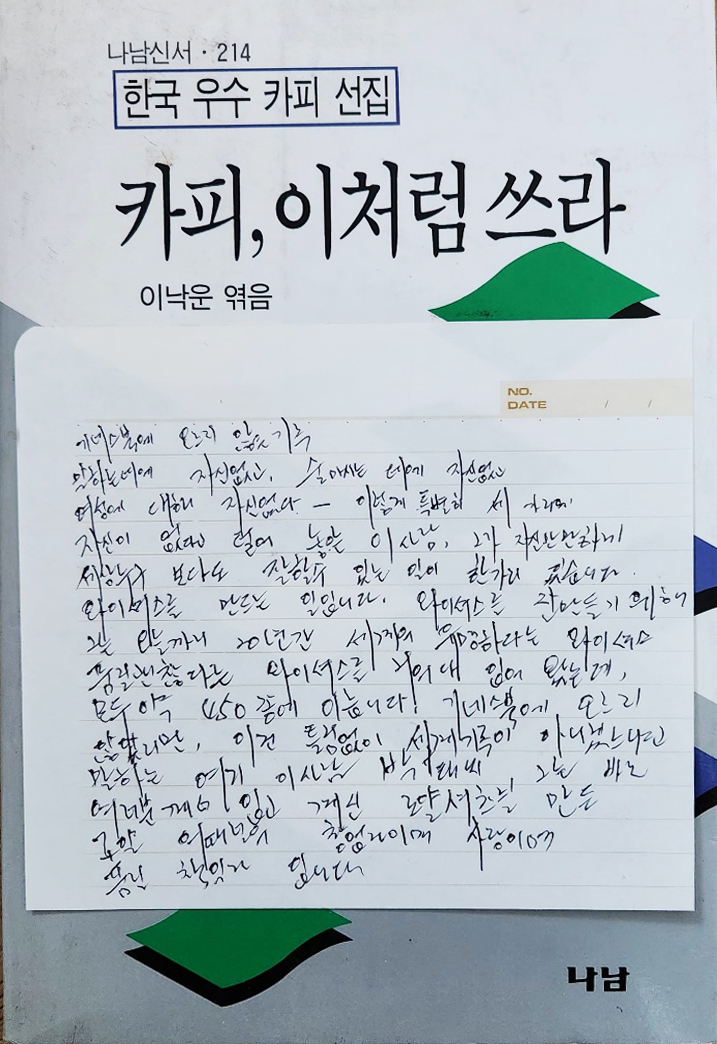 나남신서 · 214
한국 우수 카피 선집
카피, 이처럼 쓰라
이낙운 엮음
NO.
DATE / /
기네스북에 오르지 않은 기록
말하는데에 자신없고, 술 마시는 데에 자신없고
여성에 대해 자신없다 — 이렇게 특별히 세 가지에
자신이 없다고 털어 놓은 이 사람, 그가 자신만만하게
보다도 잘할 수 있는 일이 한가지 있습니다.
와이셔스를 만드는 일입니다. 와이셔스를 잘 만들기 위해
그는 오늘까지 20년간 세계의 유명하다는 와이셔스
품질 괜찮다는 와이셔스를 거의 다 입어 왔는데,
모두 약 450 종에 이릅니다! 기네스북에 오르지
않았지만, 이건 틀림없이 세계기록이 아니겠느냐고
말하는 여기 이 사람 박 그는 바로
여러분께서 입고 계신 로얄셔츠를 만든
로얄 창업자이며 사장이며
품질 책임자 입니다
나남